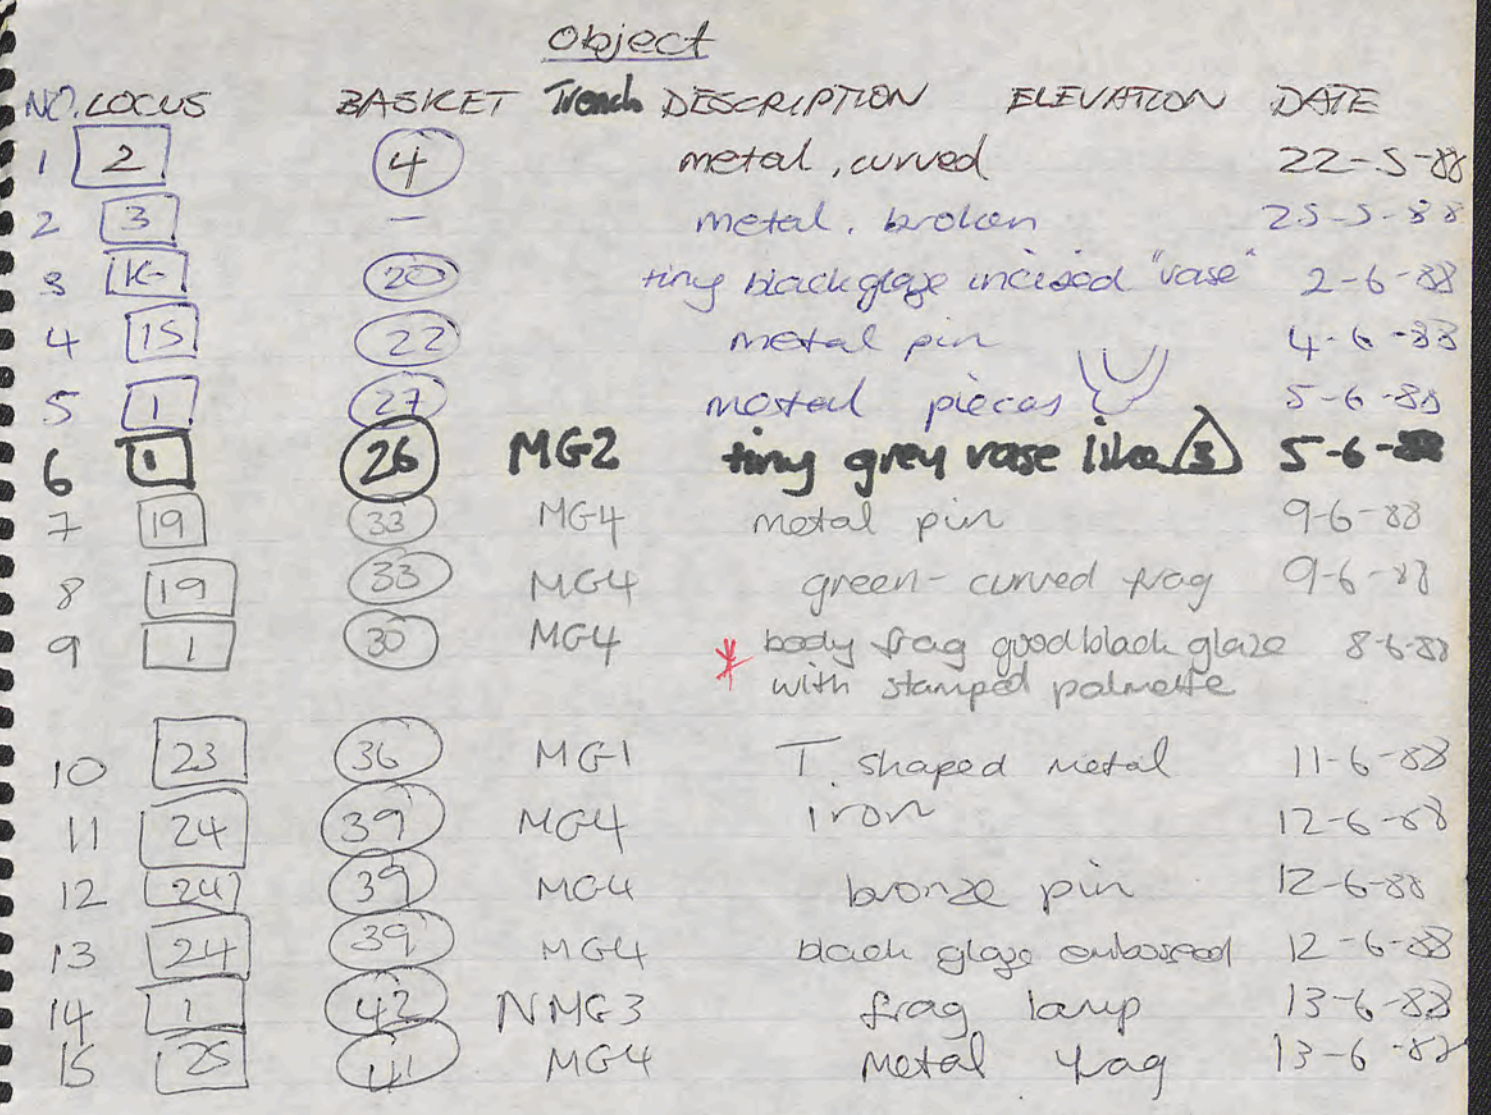 Object
NO. LOCUS BASKET Trench DESCRIPTION ELEVATION DATE
1 2 4 metal, curved 22-5-88
2 3 — metal, broken 25-5-88
3 20 tiny black glaze incised "vase" 2-6-88
4 15 22 metal pin 4-6-88
5 1 27 metal pieces 5-6-88
6 1 26 MG2 tiny grey vase like 3 5-6-88
7 19 33 MG4 metal pin 9-6-88
8 19 33 MG4 green - curved frag 9-6-88
9 1 30 MG4 * body frag good black glaze 8-6-88
with stamped palmette
10 23 36 MG1 T. shaped metal 11-6-88
11 24 39 MG4 iron 12-6-88
12 24 39 MG4 bronze pin 12-6-88
13 24 39 MG4 black glaze embossed 12-6-88
14 1 42 NMG3 frag lamp 13-6-88
15 25 41 MG4 metal frag 13-6-88